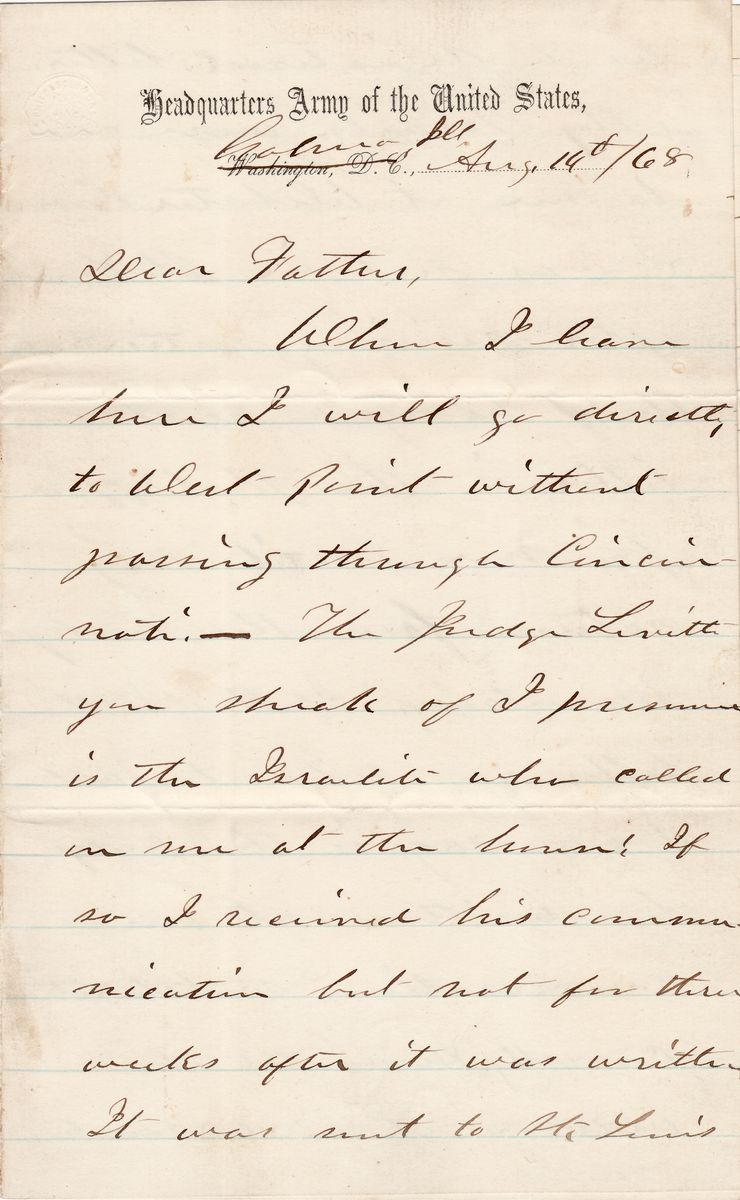 Headquarters Army of the United States,
Galena Ill
Washington, D. C., Aug. 14th /68
Dear Father,
When I leave
here I will go directly,
to West Point without
passing through Cincin-
nati. — The Judge Levitt
you speak of I presume
is the Israelite who called
on me at the house? If
so I received his commu-
nication but not for three
weeks after it was written
It was sent to St. Louis